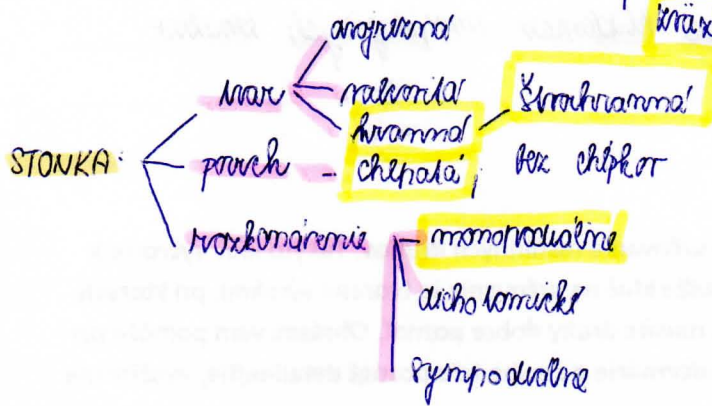 STONKA:
tvar
valcovitá
hranná
štvorhranná
povrch - chlpatá, bez chĺpkov
rozkonárenie
monopodiálne
dichotomické
sympodiálne